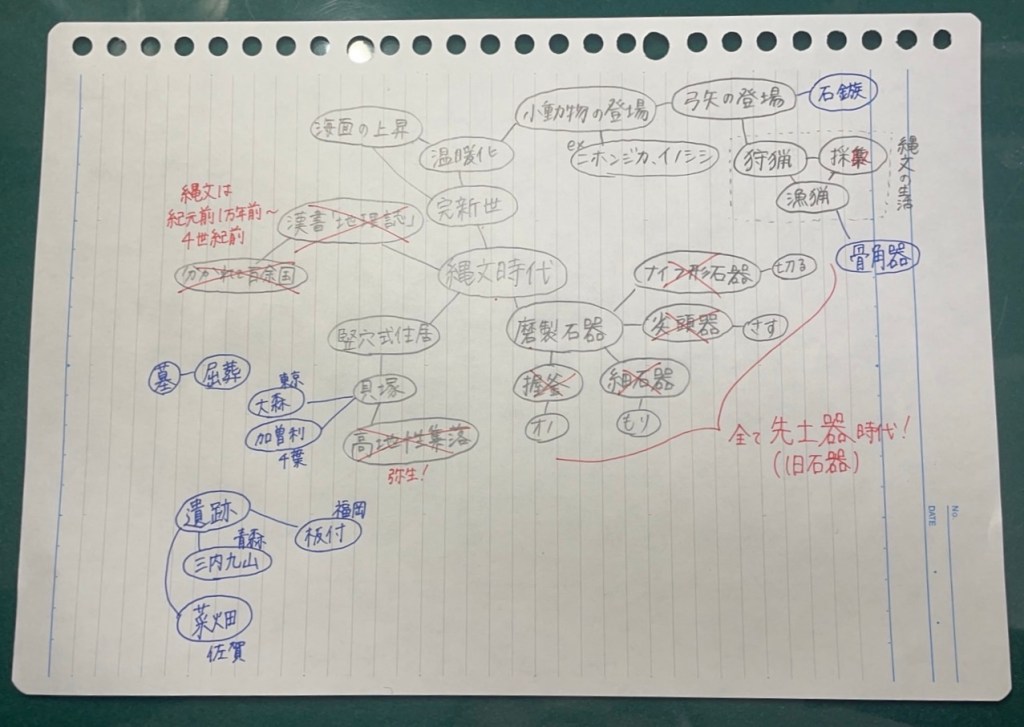 海面の上昇
小動物の登場
弓矢の登場
石鏃
温暖化
ex
ニホンジカ、イノシシ
狩猟
採集
漁猟
縄文の生活
縄文は
紀元前1万年前〜
4世紀前
漢書「地理誌」
完新世
分かれて百余国
縄文時代
骨角器
ナイフ形石器
切る
竪穴式住居
磨製石器
尖頭器
さす
墓
屈葬
東京
大森
貝塚
握斧
細石器
加曽利
千葉
オノ
もり
高地性集落
弥生!
全て先土器時代!
(旧石器)
遺跡
福岡
板付
青森
三内丸山
菜畑
佐賀
No.
DATE